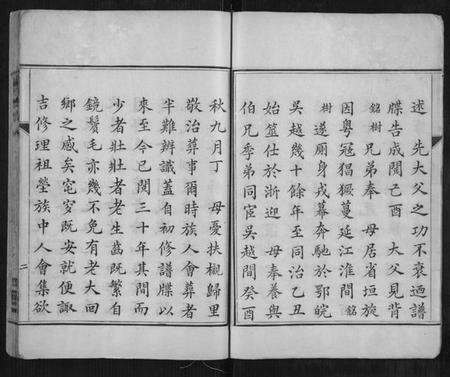 述　先大父之功不衰迺譜
牒告成閱己酉　大父見背
銘樹兄弟奉　母居省垣旋
因粵冦猖獗蔓延江淮間銘
樹遂廁身戎幕奔馳於鄂皖
吳越幾十餘年至同治乙丑
始筮仕於浙迎　母奉養與
伯兄季弟同宦吳越間癸酉
秋九月丁　母憂扶櫬歸里
敬治葬事爾時族人會葬者
半難辨識蓋自初修譜牒以
來至今已閱三十年其間而
少者壯壯者老生菡既繁自
鏡鬚毛亦幾不免有老大回
鄉之感矣窀穸既安就便諏
吉修理祖塋族中人會集欲
二